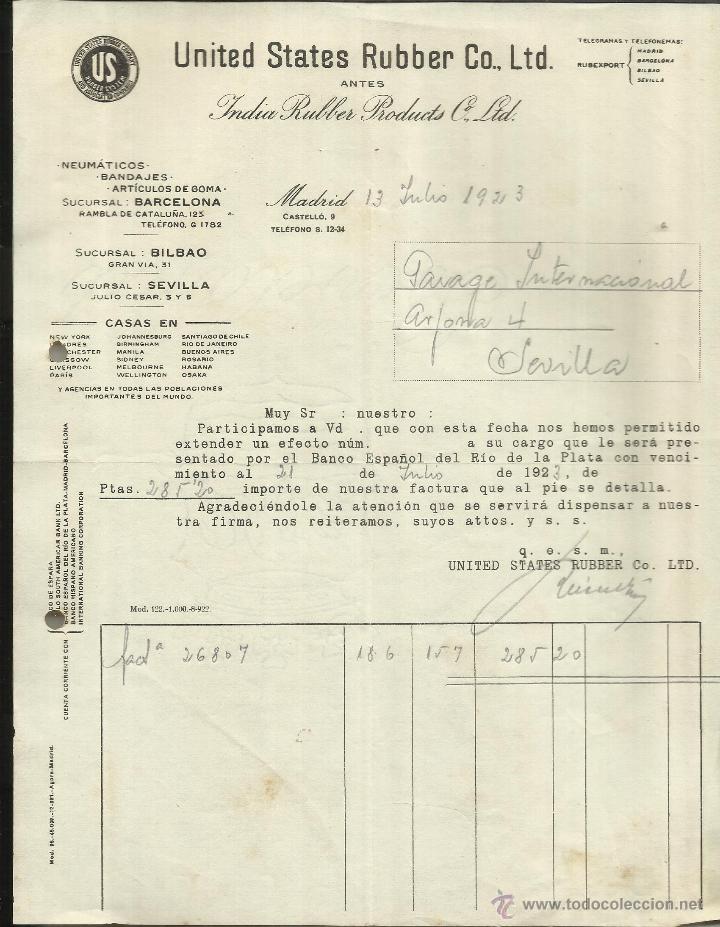 UNITED STATES RUBBER COMPANY
US
RUBBER SYSTEM
United States Rubber Co., Ltd.
ANTES
India Rubber Products Co., Ltd.
TELEGRAMAS Y TELEFONEMAS:
RUBEXPORT
MADRID
BARCELONA
BILBAO
SEVILLA
·NEUMÁTICOS·
·BANDAJES·
·ARTÍCULOS DE GOMA·
SUCURSAL : BARCELONA
RAMBLA DE CATALUÑA, 123
TELÉFONO, G 1782
SUCURSAL : BILBAO
GRAN VIA, 31
SUCURSAL : SEVILLA
JULIO CESAR, 3 Y 5
Madrid 13 Julio 1923
CASTELLÓ, 9
TELÉFONO S. 12-34
Pavage Internacional
Arjona 4
Sevilla
CASAS EN
NEW YORK JOHANNESBURG SANTIAGO DE CHILE
BIRMINGHAM RIO DE JANEIRO
MANILA BUENOS AIRES
SIDNEY ROSARIO
LIVERPOOL MELBOURNE HABANA
PARÍS WELLINGTON OSAKA
Y AGENCIAS EN TODAS LAS POBLACIONES
IMPORTANTES DEL MUNDO.
Muy Sr : nuestro :
Participamos a Vd . que con esta fecha nos hemos permitido
extender un efecto núm. a su cargo que le será pre-
sentado por el Banco Español del Río de la Plata con venci-
miento al 21 de Julio de 1923, de
Ptas. 285'20 importe de nuestra factura que al pie se detalla.
Agradeciéndole la atención que se servirá dispensar a nues-
tra firma, nos reiteramos, suyos attos. y s. s.
q. e. s. m.,
UNITED STATES RUBBER Co. LTD.
CUENTA CORRIENTE CON
DE ESPAÑA
SOUTH AMERICAN BANK LTD.
BANCO ESPAÑOL DEL RÍO DE LA PLATA-MADRID-BARCELONA
BANCO HISPANO AMERICANO
INTERNATIONAL BANKING CORPORATION
Mod. 122.-1.000.-8-922.
Facª 26807 186 157 285 20
www.todocoleccion.net